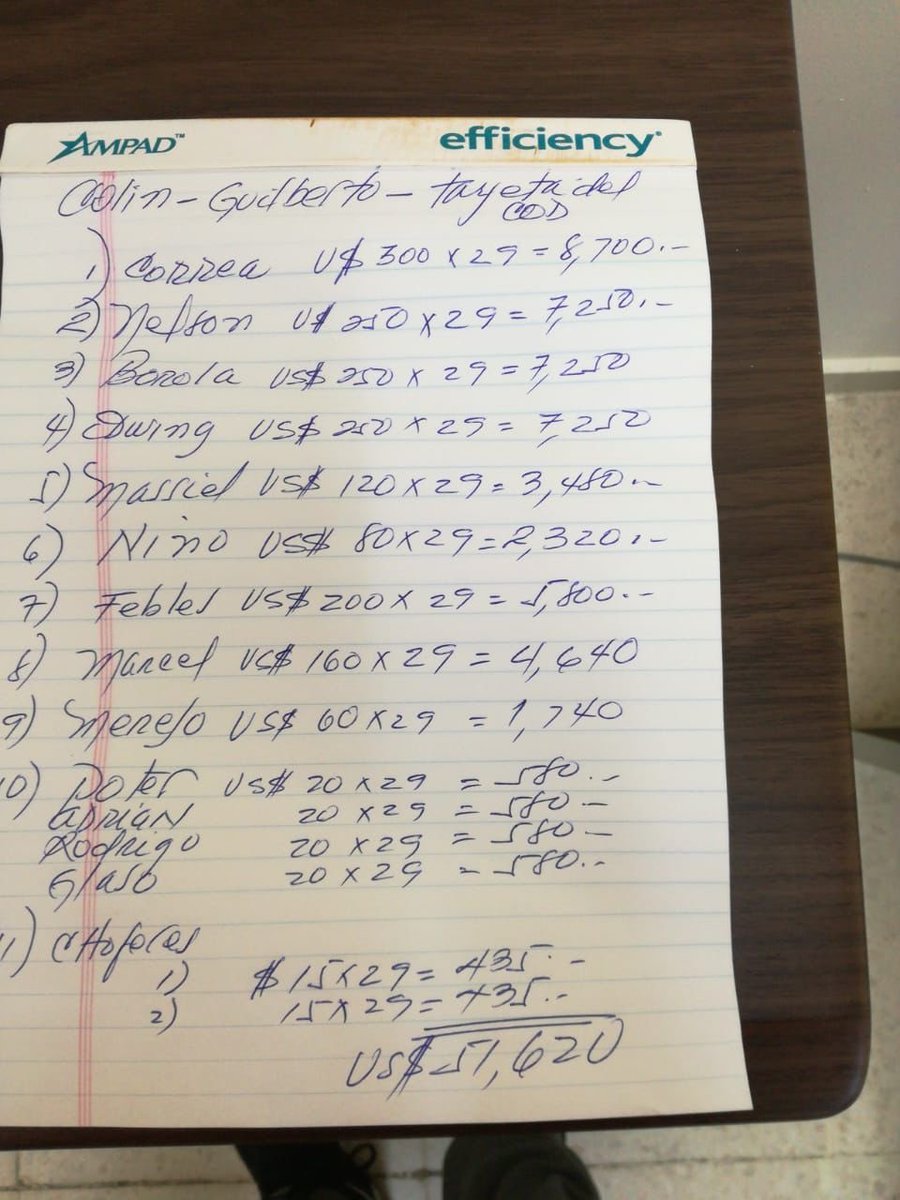 AMPAD™ efficiency®
Colin - Guilberto - tarjeta del
COD
1) Correa U$ 300 x 29 = 8,700.-
2) Nelson U$ 250 x 29 = 7,250.-
3) Borola US$ 250 x 29 = 7,250
4) During US$ 250 x 29 = 7,250
5) Massiel US$ 120 x 29 = 3,480.-
6) Nino US$ 80 x 29 = 2,320.-
7) Febles US$ 200 x 29 = 5,800.-
8) Marcel US$ 160 x 29 = 4,640
9) US$ 60 x 29 = 1,740
10) US$ 20 x 29 = 580.-
Adrian 20 x 29 = 580 -
Rodrigo 20 x 29 = 580 -
20 x 29 = 580.-
11) Choferes
1) $ 15 x 29 = 435.-
2) 15 x 29 = 435.-
US$ 51,620